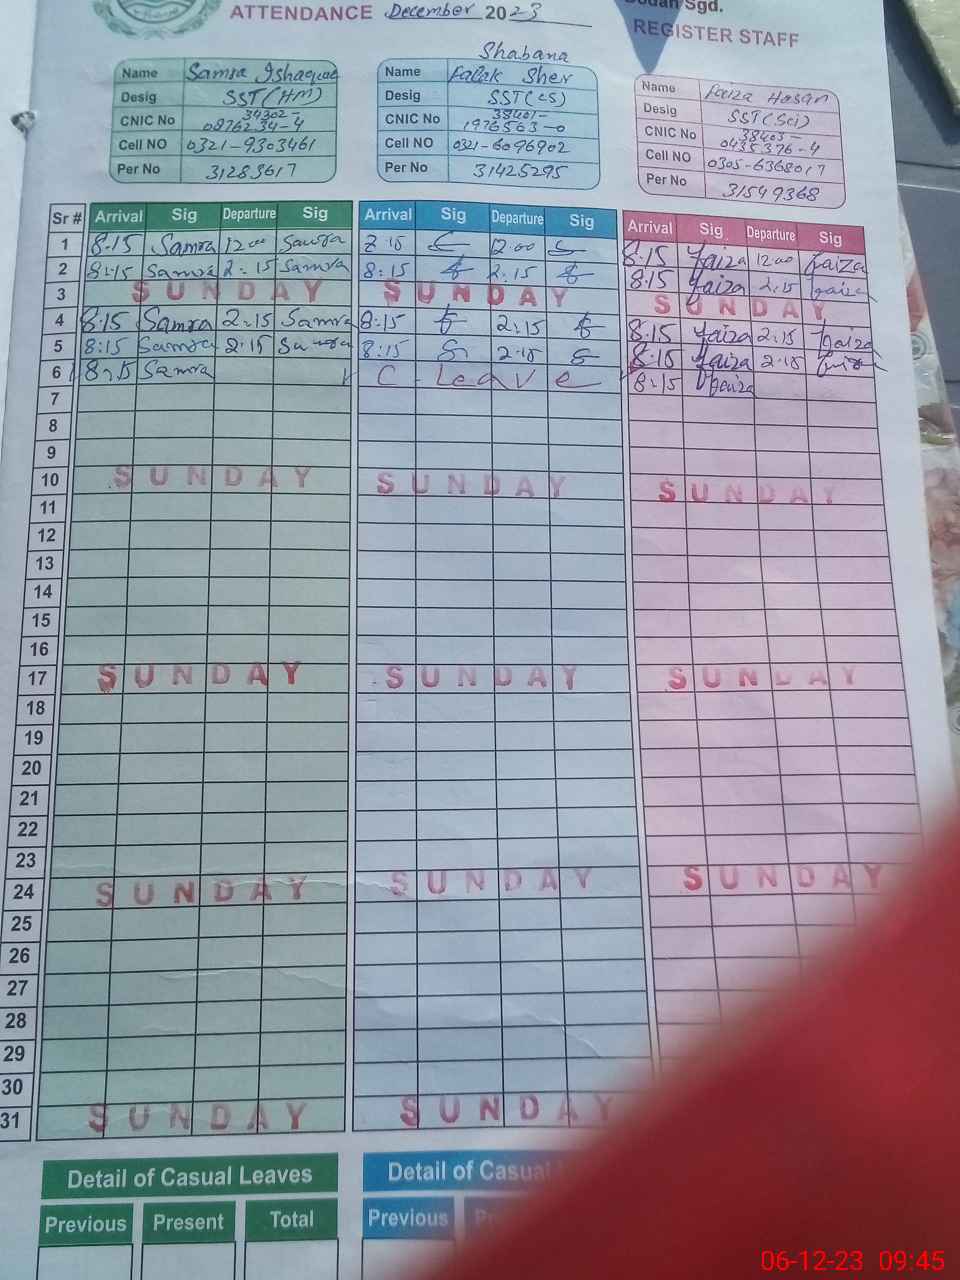 ATTENDANCE December 2023
Sgd.
REGISTER STAFF
Name Samra Ishaque
Desig SST(HM)
CNIC No 34302-0876234-4
Cell NO 0321-9303461
Per No 31283617
Shabana
Name Falak Sher
Desig SST(CS)
CNIC No 38401-1976563-0
Cell NO 0321-6096902
Per No 31425295
Name Faiza Hasan
Desig SST(Sci)
CNIC No 38403-0435376-4
Cell NO 0305-6368017
Per No 31549368
Sr # Arrival Sig Departure Sig Arrival Sig Departure Sig Arrival Sig Departure Sig
1 8:15 Samra 12:00 Samra 12:00 8:15 Faiza 12:00 Faiza
2 8:15 Samra 2:15 Samra 8:15 2:15 8:15 Faiza 2:15 Faiza
3 SUNDAY SUNDAY SUNDAY
4 8:15 Samra 2:15 Samra 8:15 2:15 8:15 Faiza 2:15 Faiza
5 8:15 Samra 2:15 Samra 8:15 2:15 8:15 Faiza 2:15 Faiza
6 8:15 Samra C. Leave 8:15 Faiza
7
8
9
10 SUNDAY SUNDAY SUNDAY
11
12
13
14
15
16
17 SUNDAY SUNDAY SUNDAY
18
19
20
21
22
23
24 SUNDAY SUNDAY SUNDAY
25
26
27
28
29
30
31 SUNDAY SUNDAY
Detail of Casual Leaves Detail of Casual
Previous Present Total Previous
06-12-23 09:45